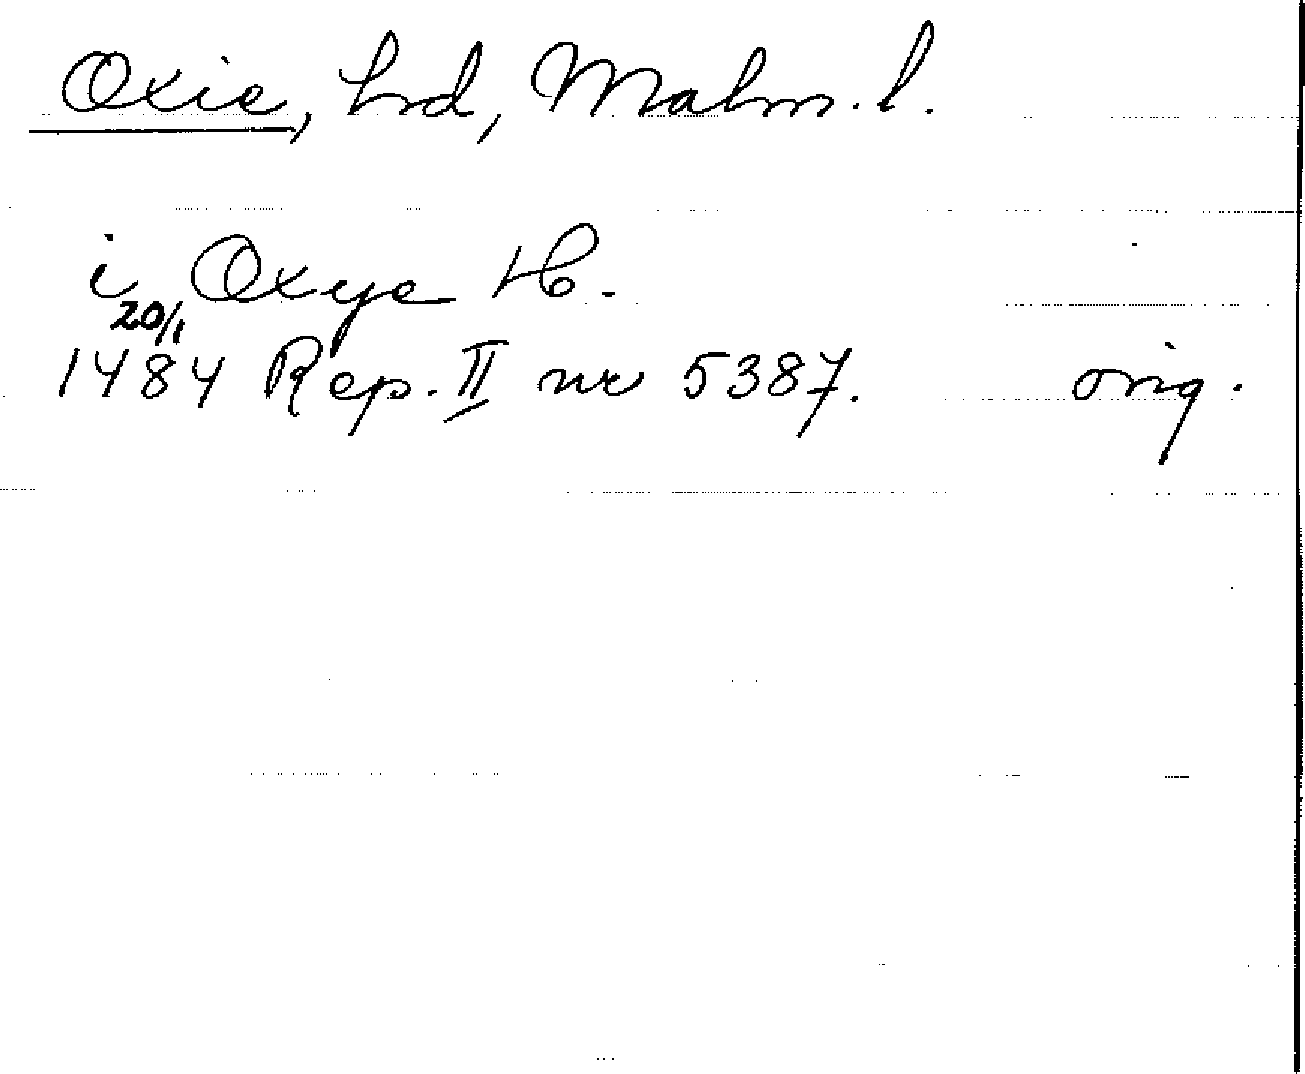 Oxie, hrd, Malm. l.
i Oxye H.
20/1
1484 Rep. II nr 5387. orig.